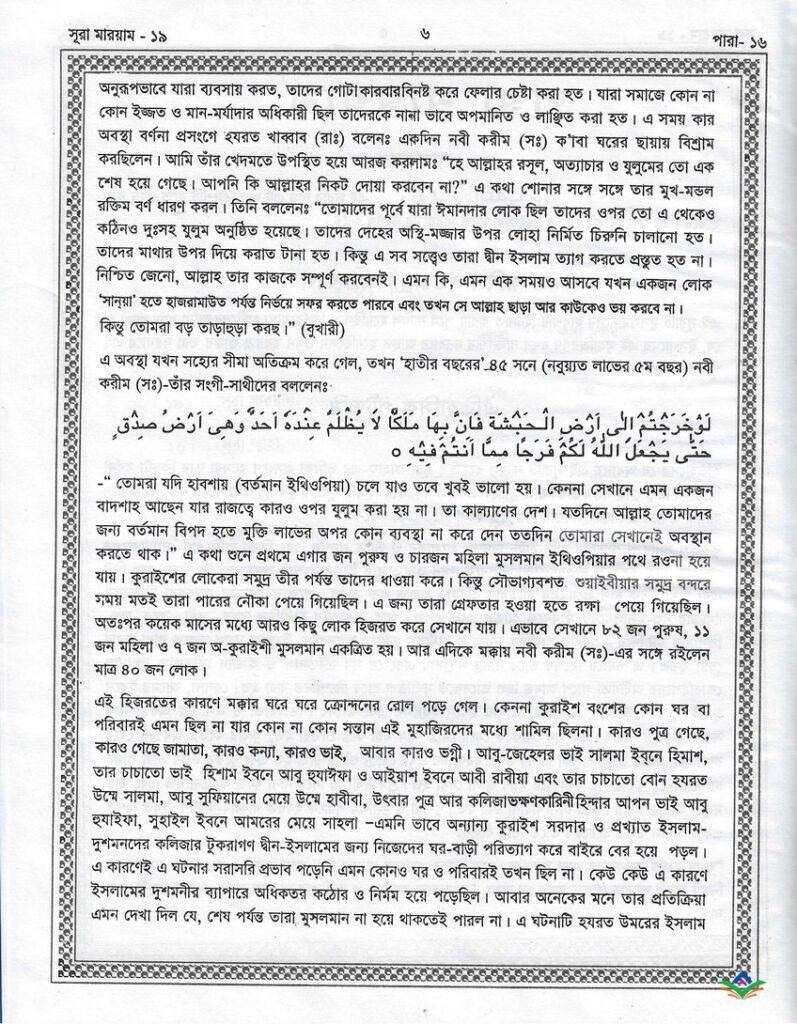 সূরা মারয়াম - ১৯
৬
পারা- ১৬
অনুরূপভাবে যারা ব্যবসায় করত, তাদের গোটা কারবার বিনষ্ট করে ফেলার চেষ্টা করা হত। যারা সমাজে কোন না
কোন ইজ্জত ও মান-মর্যাদার অধিকারী ছিল তাদেরকে নানা ভাবে অপমানিত ও লাঞ্ছিত করা হত। এ সময় কার
অবস্থা বর্ণনা প্রসংগে হযরত খাব্বাব (রাঃ) বলেনঃ একদিন নবী করীম (সঃ) ক'াবা ঘরের ছায়ায় বিশ্রাম
করছিলেন। আমি তাঁর খেদমতে উপস্থিত হয়ে আরজ করলামঃ “হে আল্লাহর রসূল, অত্যাচার ও যুলুমের তো এক
শেষ হয়ে গেছে। আপনি কি আল্লাহর নিকট দোয়া করবেন না?” এ কথা শোনার সঙ্গে সঙ্গে তার মুখ-মন্ডল
রক্তিম বর্ণ ধারণ করল। তিনি বললেনঃ “তোমাদের পূর্বে যারা ঈমানদার লোক ছিল তাদের ওপর তো এ থেকেও
কঠিনও দুঃসহ যুলুম অনুষ্ঠিত হয়েছে। তাদের দেহের অস্থি-মজ্জার উপর লোহা নির্মিত চিরুনি চালানো হত।
তাদের মাথার উপর দিয়ে করাত টানা হত। কিন্তু এ সব সত্ত্বেও তারা দ্বীন ইসলাম ত্যাগ করতে প্রস্তুত হত না।
নিশ্চিত জেনো, আল্লাহ তার কাজকে সম্পূর্ণ করবেনই। এমন কি, এমন এক সময়ও আসবে যখন একজন লোক
‘সান্‌য়া’ হতে হাজরামাউত পর্যন্ত নির্ভয়ে সফর করতে পারবে এবং তখন সে আল্লাহ ছাড়া আর কাউকেও ভয় করবে না।
কিন্তু তোমরা বড় তাড়াহুড়া করছ।” (বুখারী)
এ অবস্থা যখন সহ্যের সীমা অতিক্রম করে গেল, তখন ‘হাতীর বছরের’ ৪৫ সনে (নবুয়্যত লাভের ৫ম বছর) নবী
করীম (সঃ)-তাঁর সংগী-সাথীদের বললেনঃ
لَوْخَرَجْتُمْ اِلٰى اَرْضِ الْحَبْشَةِ فَاِنَّ بِهَا مَلِكًا لَا يُظْلَمُ عِنْدَهٗ اَحَدٌ وَهِىَ اَرْضُ صِدْقٍ
حَتّٰى يَجْعَلَ اللّٰهُ لَكُمْ فَرَجًا مِمَّا اَنْتُمْ فِيْهِ ٥
-“ তোমরা যদি হাবশায় (বর্তমান ইথিওপিয়া) চলে যাও তবে খুবই ভালো হয়। কেননা সেখানে এমন একজন
বাদশাহ আছেন যার রাজত্বে কারও ওপর যুলুম করা হয় না। তা কাল্যাণের দেশ। যতদিনে আল্লাহ তোমাদের
জন্য বর্তমান বিপদ হতে মুক্তি লাভের অপর কোন ব্যবস্থা না করে দেন ততদিন তোমারা সেখানেই অবস্থান
করতে থাক।” এ কথা শুনে প্রথমে এগার জন পুরুষ ও চারজন মহিলা মুসলমান ইথিওপিয়ার পথে রওনা হয়ে
যায়। কুরাইশের লোকেরা সমুদ্র তীর পর্যন্ত তাদের ধাওয়া করে। কিন্তু সৌভাগ্যবশত শুয়াইবীয়ার সমুদ্র বন্দরে
সময় মতই তারা পারের নৌকা পেয়ে গিয়েছিল। এ জন্য তারা গ্রেফতার হওয়া হতে রক্ষা পেয়ে গিয়েছিল।
অতঃপর কয়েক মাসের মধ্যে আরও কিছু লোক হিজরত করে সেখানে যায়। এভাবে সেখানে ৮২ জন পুরুষ, ১১
জন মহিলা ও ৭ জন অ-কুরাইশী মুসলমান একত্রিত হয়। আর এদিকে মক্কায় নবী করীম (সঃ)-এর সঙ্গে রইলেন
মাত্র ৪০ জন লোক।
এই হিজরতের কারণে মক্কার ঘরে ঘরে ক্রোন্দনের রোল পড়ে গেল। কেননা কুরাইশ বংশের কোন ঘর বা
পরিবারই এমন ছিল না যার কোন না কোন সন্তান এই মুহাজিরদের মধ্যে শামিল ছিলনা। কারও পুত্র গেছে,
কারও গেছে জামাতা, কারও কন্যা, কারও ভাই, আবার কারও ভগ্নী। আবু-জেহেলর ভাই সালমা ইব্‌নে হিমাশ,
তার চাচাতো ভাই হিশাম ইবনে আবু হুযাঈফা ও আইয়াশ ইবনে আবী রাবীয়া এবং তার চাচাতো বোন হযরত
উম্মে সালমা, আবু সুফিয়ানের মেয়ে উম্মে হাবীবা, উৎবার পুত্র আর কলিজাভক্ষণকারিনী হিন্দার আপন ভাই আবু
হুযাইফা, সুহাইল ইবনে আমরের মেয়ে সাহলা –এমনি ভাবে অন্যান্য কুরাইশ সরদার ও প্রখ্যাত ইসলাম-
দুশমনদের কলিজার টুকরাগণ দ্বীন-ইসলামের জন্য নিজেদের ঘর-বাড়ী পরিত্যাগ করে বাইরে বের হয়ে পড়ল।
এ কারণেই এ ঘটনার সরাসরি প্রভাব পড়েনি এমন কোনও ঘর ও পরিবারই তখন ছিল না। কেউ কেউ এ কারণে
ইসলামের দুশমনীর ব্যাপারে অধিকতর কঠোর ও নির্মম হয়ে পড়েছিল। আবার অনেকের মনে তার প্রতিক্রিয়া
এমন দেখা দিল যে, শেষ পর্যন্ত তারা মুসলমান না হয়ে থাকতেই পারল না। এ ঘটনাটি হযরত উমরের ইসলাম